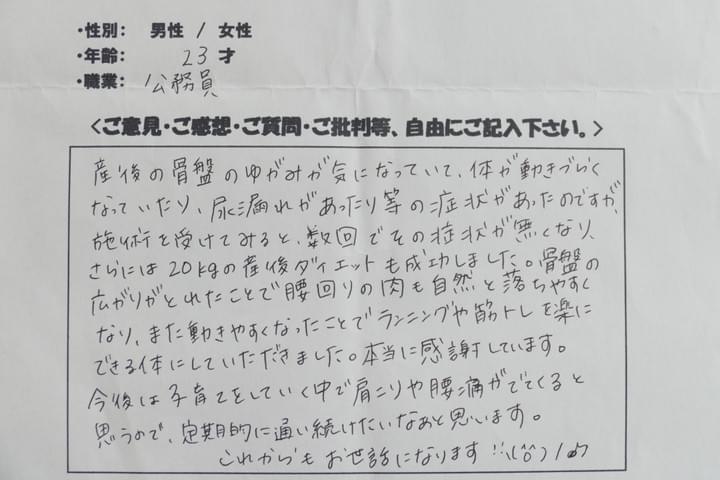 ・性別: 男性 / 女性
・年齢: 23 才
・職業: 公務員
<ご意見・ご感想・ご質問・ご批判等、自由にご記入下さい。>
産後の骨盤のゆがみが気になっていて、体が動きづらく
なっていたり、尿漏れがあったり等の症状があったのですが、
施術を受けてみると、数回でその症状が無くなり、
さらには20kgの産後ダイエットも成功しました。骨盤の
広がりがとれたことで腰回りの肉も自然と落ちやすく
なり、また動きやすくなったことでランニングや筋トレを楽に
できる体にしていただきました。本当に感謝しています。
今後は子育てをしていく中で肩こりや腰痛がでてくると
思うので、定期的に通い続けたいなあと思います。
これからもお世話になります